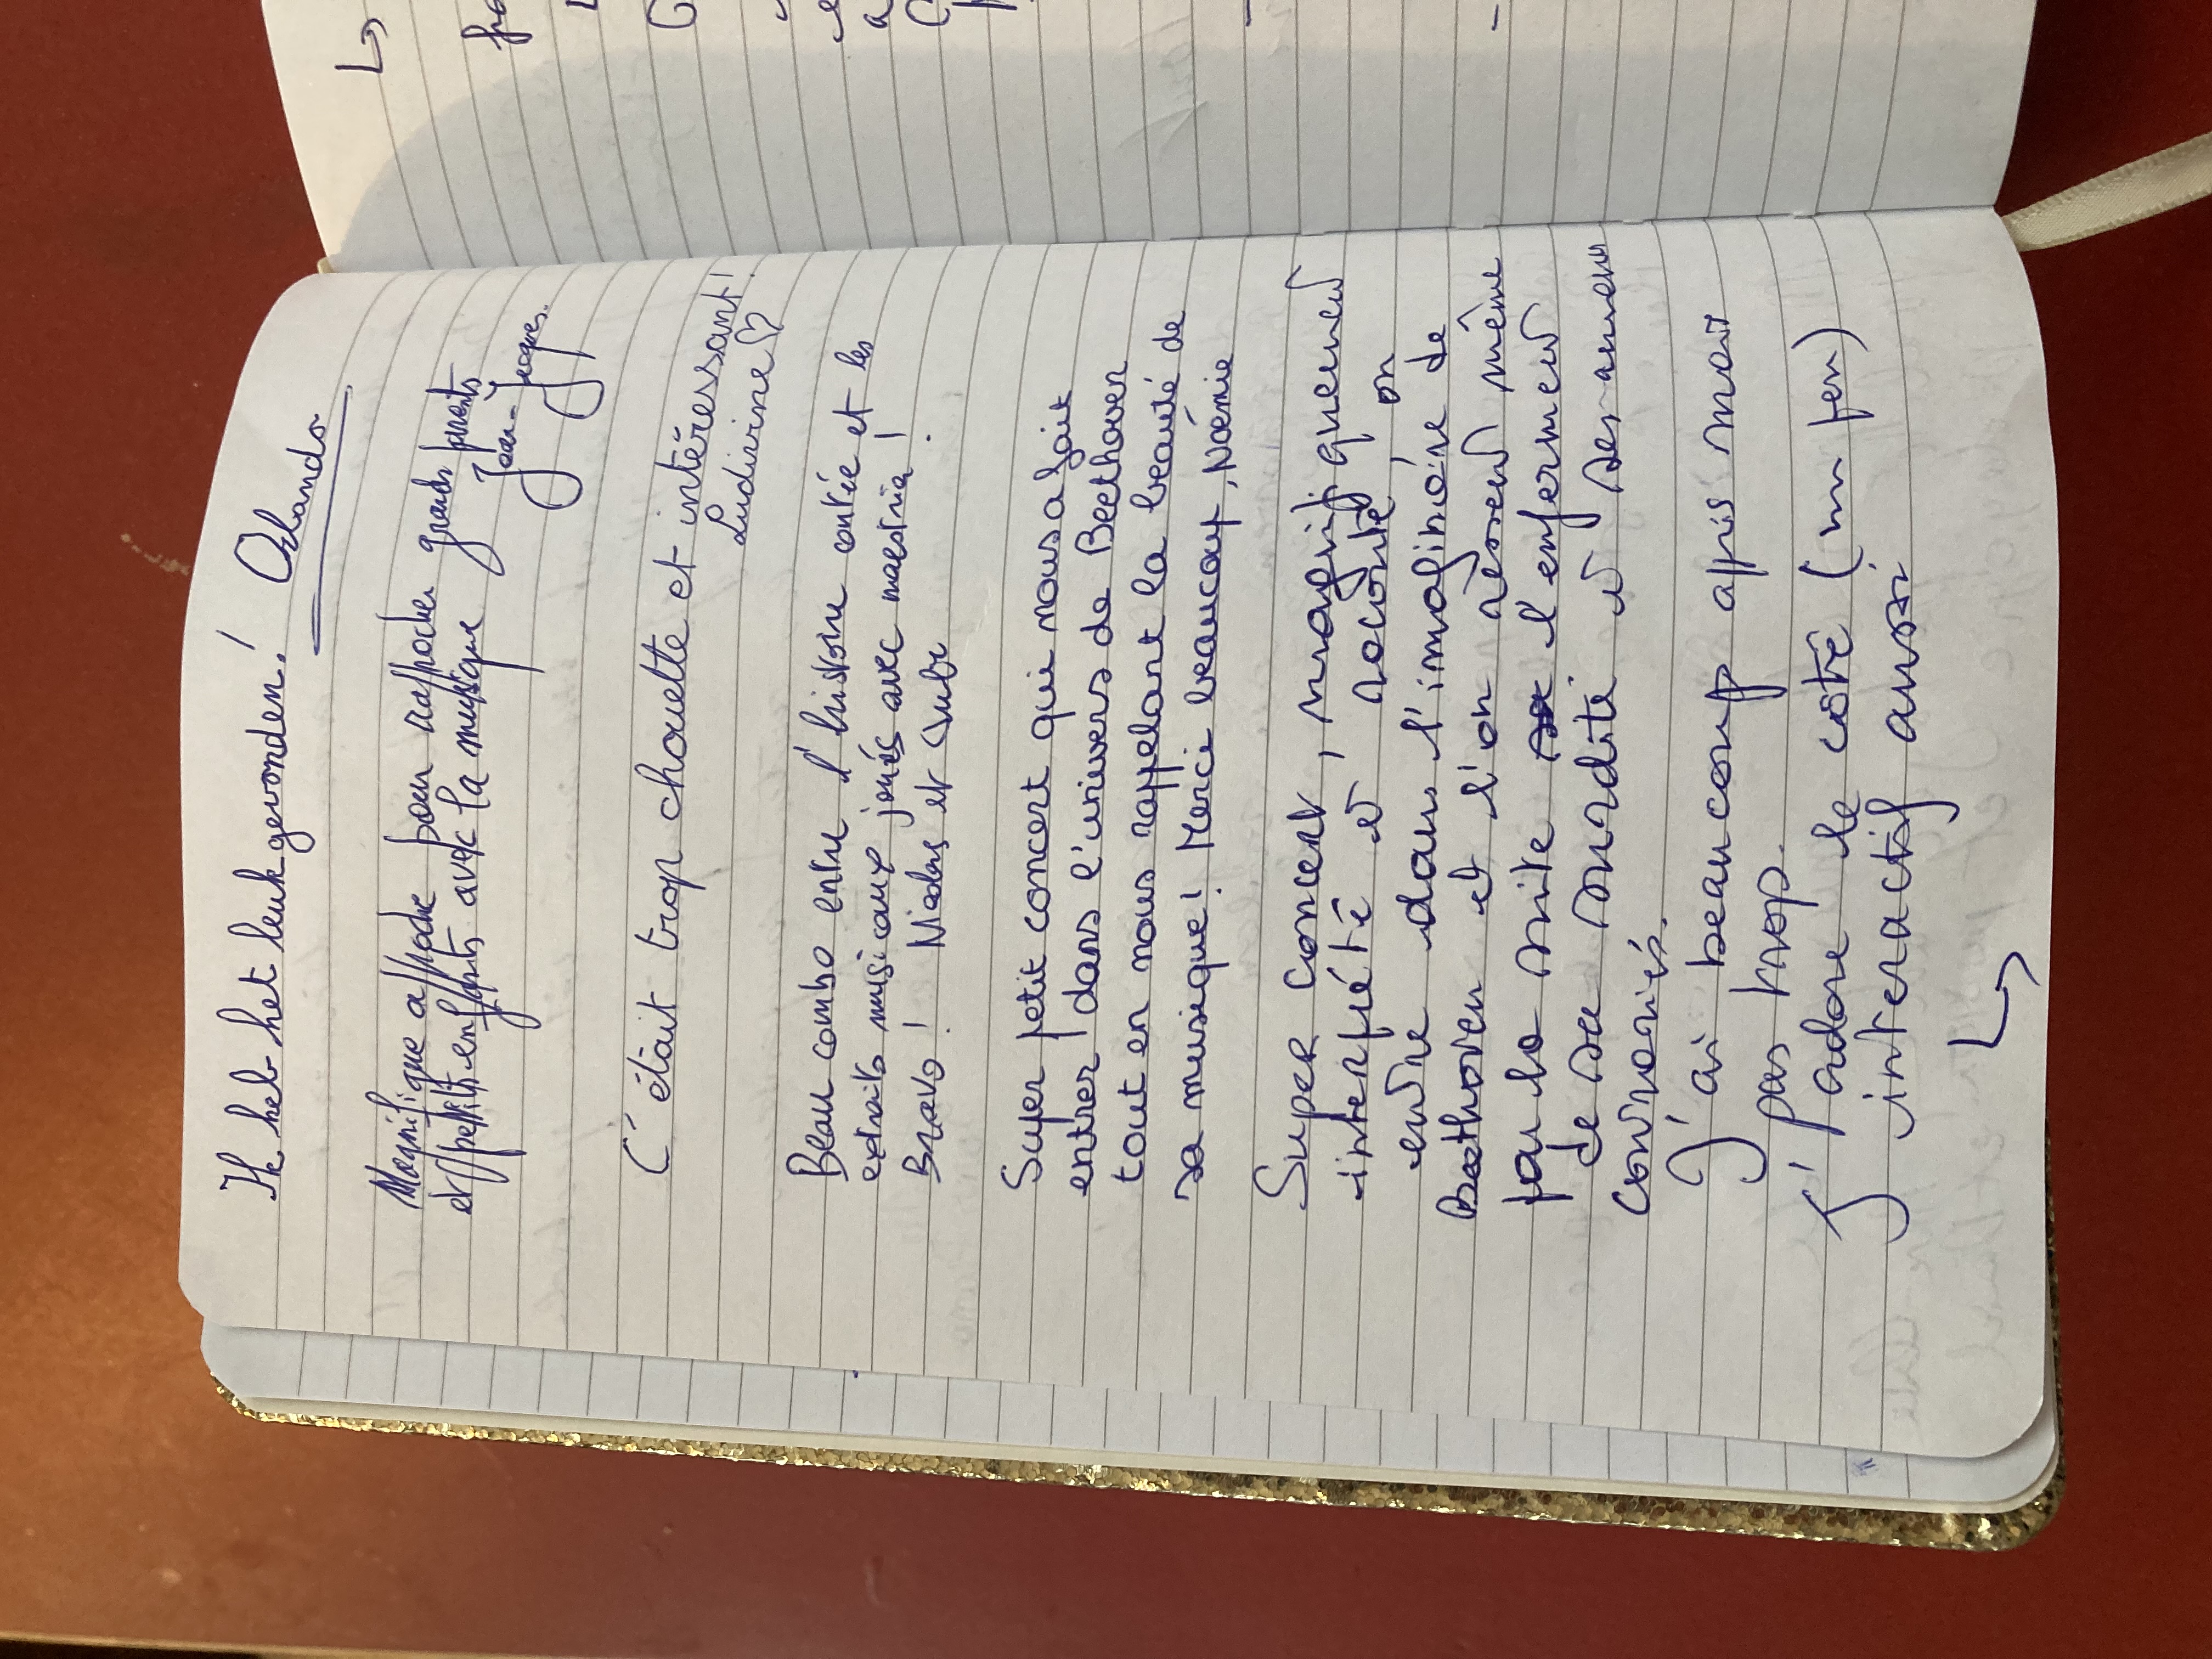 Ik heb het leuk gevonden! Orlando
Magnifique approche pour rapprocher grands parents
et petits enfants avec la musique
Jean-Jacques.
C'était trop chouette et intéressant!
Ludivine ♡
Beau combo entre l'histoire contée et les
extraits musicaux joués avec maestria!
Bravo! Nicolas et
Super petit concert qui nous a fait
entrer dans l'univers de Beethoven
tout en nous rappelant la beauté de
sa musique! Merci beaucoup, Noémie
Super concert, magnifiquement
interprété et raconté, on
entre dans l'imaginaire de
Beethoven et l'on ressent même
par la suite l'enfermement
de sa surdité et ses années
J'ai beaucoup appris mais
pas trop.
J'adore le côté (un peu)
interactif aussi
↳